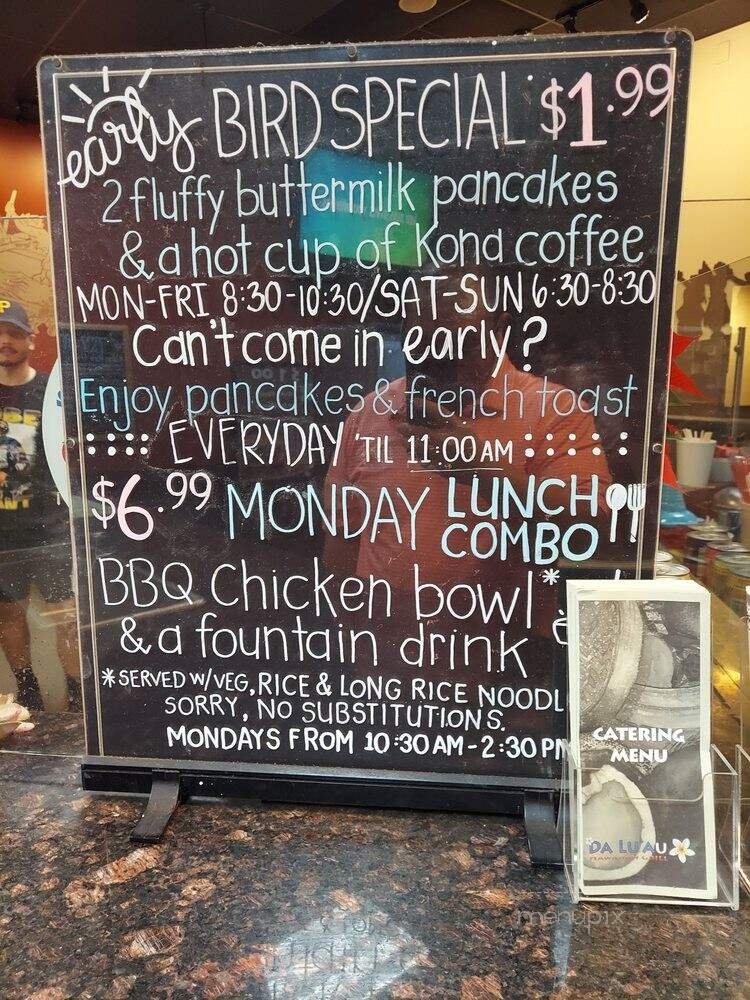 early BIRD SPECIAL $1.99
2 fluffy buttermilk pancakes
& a hot cup of Kona coffee
MON-FRI 8:30-10:30/SAT-SUN 6:30-8:30
Can't come in early?
Enjoy pancakes & french toast
EVERYDAY 'TIL 11:00 AM
$6.99 MONDAY LUNCH COMBO
BBQ Chicken bowl*
& a fountain drink
*SERVED W/VEG, RICE & LONG RICE NOODL
SORRY, NO SUBSTITUTIONS.
MONDAYS FROM 10:30 AM-2:30 PM
CATERING
MENU
DA LU'AU
HAWAIIAN GRILL
menupix